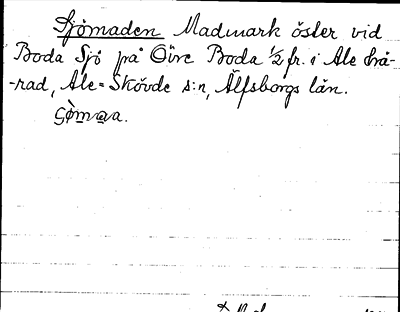 Sjömaden Madmark öster vid
Boda Sjö på Öivre Boda 1/2 fr. i Ale hä-
-rad, Ale-Skövde s:n, Älfsborgs län.